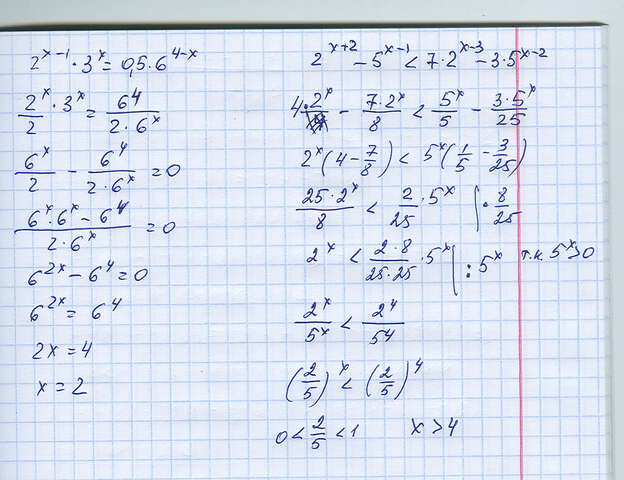 2^{x-1} · 3^x = 0,5 · 6^{4-x}
\frac{2^x}{2} · 3^x = \frac{6^4}{2 · 6^x}
\frac{6^x}{2} - \frac{6^4}{2 · 6^x} = 0
\frac{6^x · 6^x - 6^4}{2 · 6^x} = 0
6^{2x} - 6^4 = 0
6^{2x} = 6^4
2x = 4
x = 2
2^{x+2} - 5^{x-1} < 7 · 2^{x-3} - 3 · 5^{x-2}
4 · 2^x - \frac{7 · 2^x}{8} < \frac{5^x}{5} - \frac{3 · 5^x}{25}
2^x (4 - \frac{7}{8}) < 5^x (\frac{1}{5} - \frac{3}{25})
\frac{25 · 2^x}{8} < \frac{2}{25} · 5^x | · \frac{8}{25}
2^x < \frac{2 · 8}{25 · 25} · 5^x | : 5^x т.к. 5^x > 0
\frac{2^x}{5^x} < \frac{2^4}{5^4}
(\frac{2}{5})^x < (\frac{2}{5})^4
0 < \frac{2}{5} < 1 x > 4